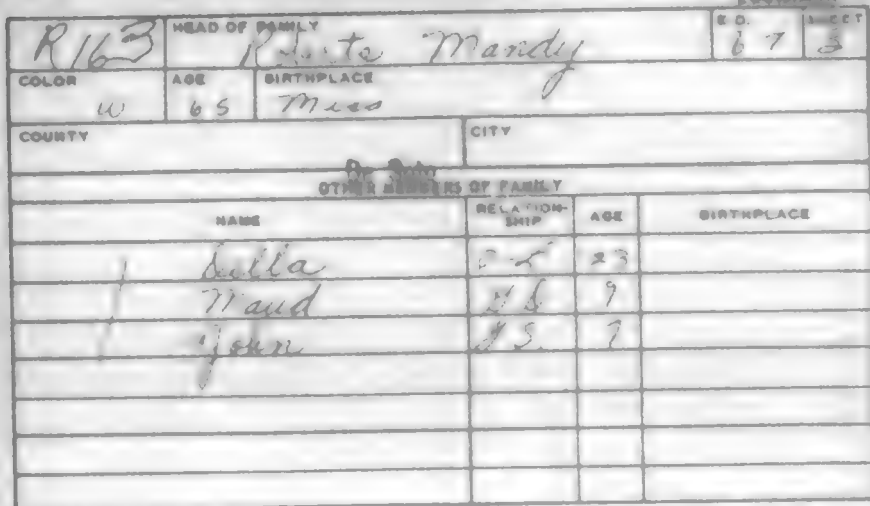 R163 HEAD OF FAMILY Roberts Mandy E.D. 67 SHEET 3
COLOR W AGE 65 BIRTHPLACE Miss
COUNTY CITY
OTHER MEMBERS OF FAMILY
NAME RELATION-SHIP AGE BIRTHPLACE
23
Maud G D 9
John G S. 7